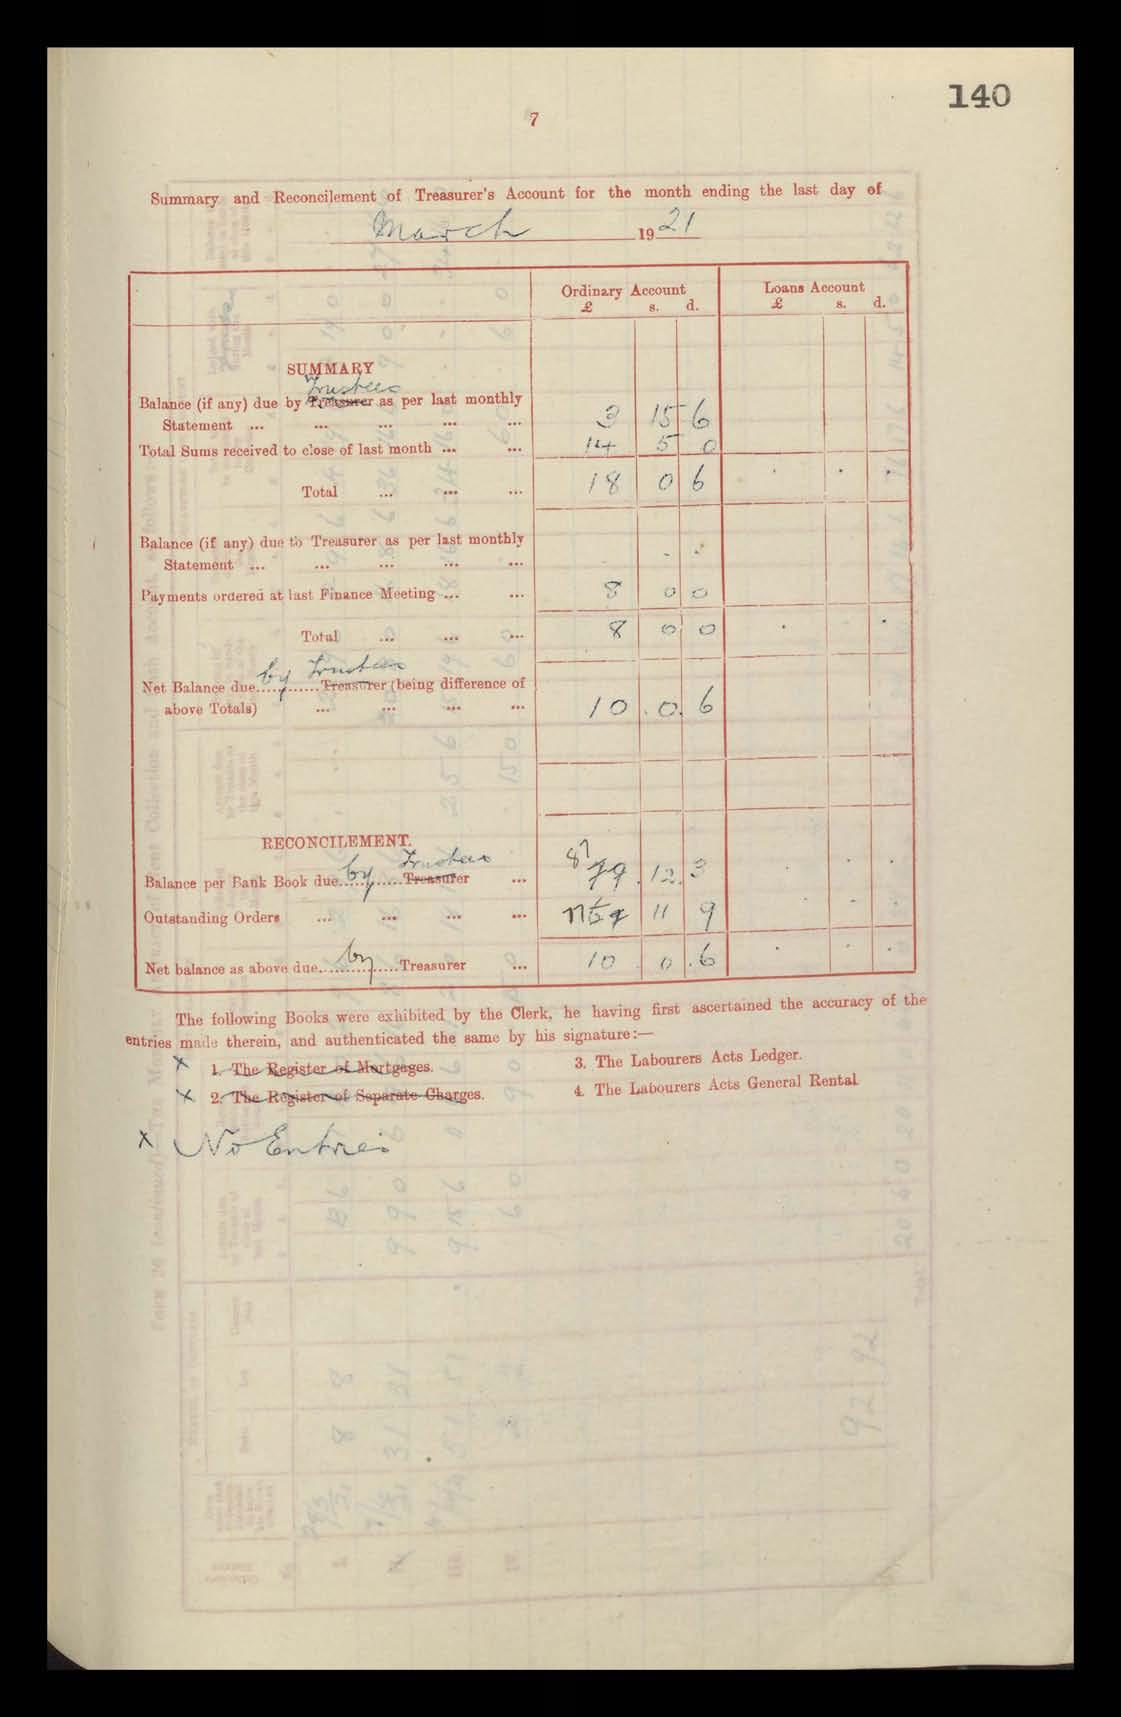 140
7
Summary and Reconcilement of Treasurer's Account for the month ending the last day of
March 1921
Ordinary Account Loans Account
£ s. d. £ s. d.
SUMMARY
Trustees
Balance (if any) due by Treasurer as per last monthly
Statement ... ... ... ... ... 3 15 6
Total Sums received to close of last month ... ... 14 5 0
Total ... ... ... 18 0 6
Balance (if any) due to Treasurer as per last monthly
Statement ... ... ... ... ...
Payments ordered at last Finance Meeting ... ... 8 0 0
Total ... ... ... 8 0 0
by Trustees
Net Balance due..........Treasurer (being difference of
above Totals) ... ... ... ... 10 0 6
RECONCILEMENT.
Trustees
Balance per Bank Book due by Treasurer ... 87 12 3
Outstanding Orders ... ... ... ... 11 9
Net balance as above due by Treasurer ... 10 0 6
The following Books were exhibited by the Clerk, he having first ascertained the accuracy of the
entries made therein, and authenticated the same by his signature:—
x 1. The Register of Mortgages. 3. The Labourers Acts Ledger.
x 2. The Register of Separate Charges. 4. The Labourers Acts General Rental
x No Entries